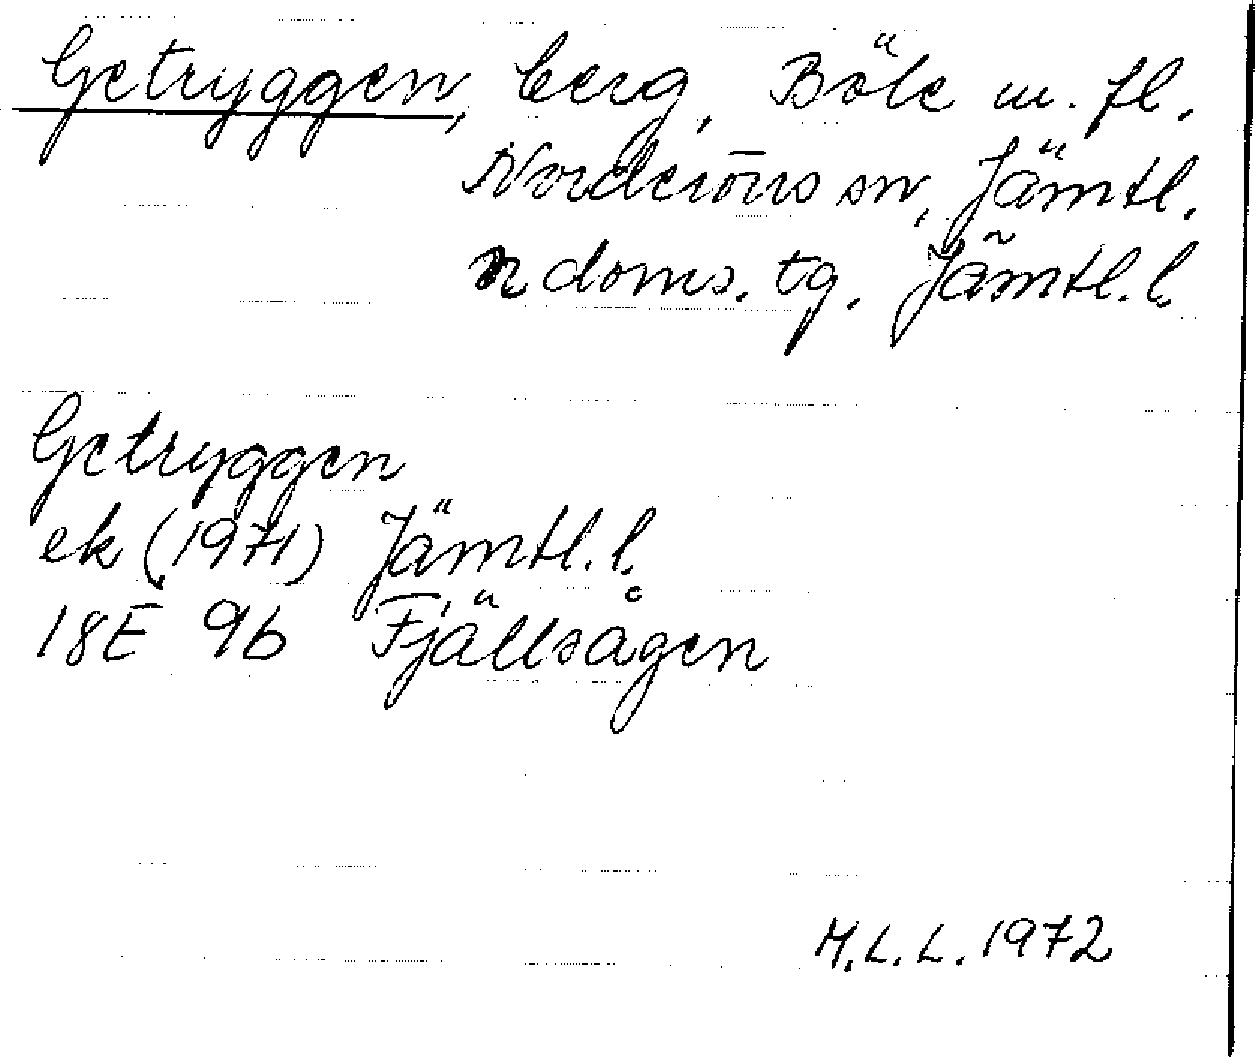 Getryggen, berg, Böle m. fl.
Norderöns sn, Jämtl.
n doms. tg. Jämtl. l.
Getryggen
ek (1971) Jämtl. l.
18E 9b Fjällsågen
M.L.L. 1972